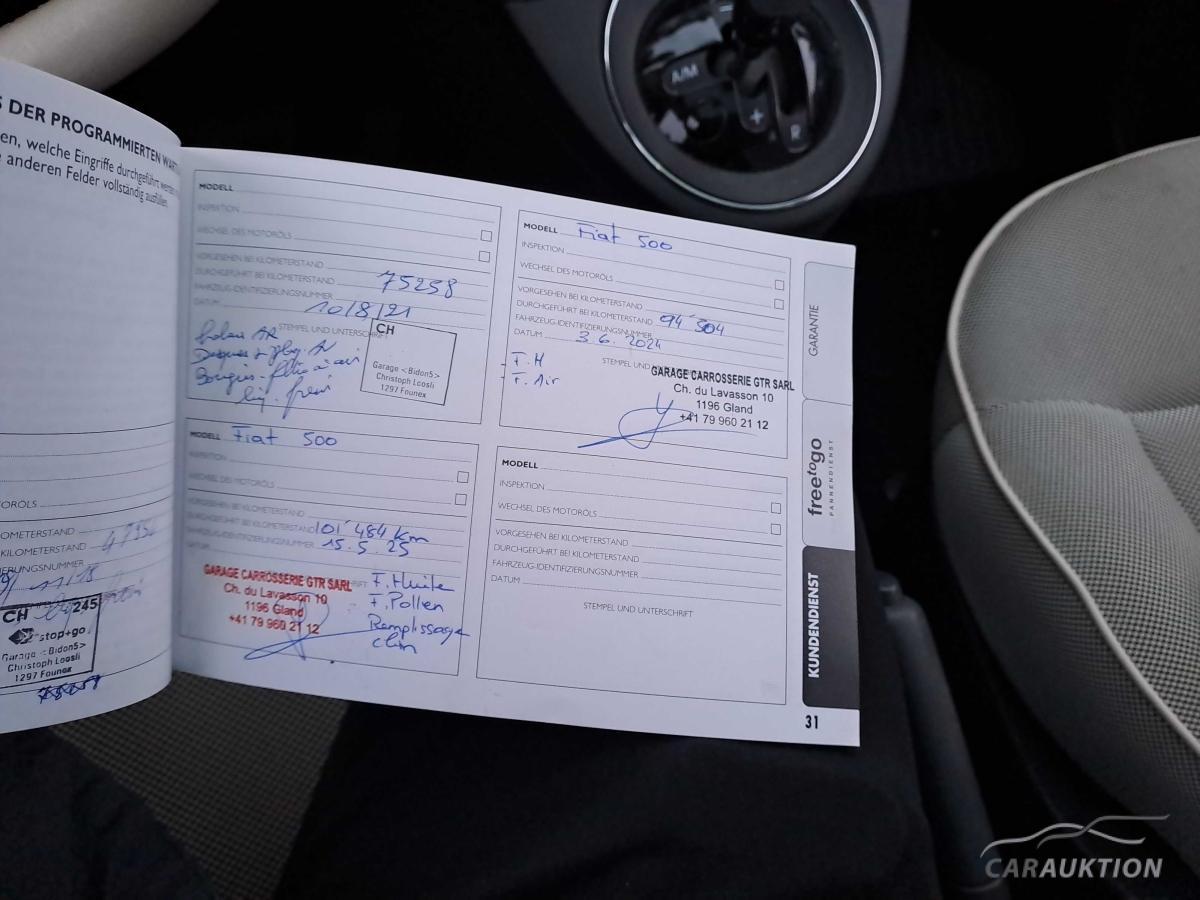 S DER PROGRAMMIERTEN WART
en, welche Eingriffe durchgeführt werden
e anderen Felder vollständig ausfüllen.
TORÖLS
OMETERSTAND
KILOMETERSTAND
IERUNGSNUMMER
11/18
CH 245
stop+go
Garage <Bidon5>
Christoph Loosli
1297 Founex
MODELL
INSPEKTION
WECHSEL DES MOTORÖLS
VORGESEHEN BEI KILOMETERSTAND
DURCHGEFÜHRT BEI KILOMETERSTAND 75258
FAHRZEUG-IDENTIFIZIERUNGSNUMMER
DATUM 10/8/21
STEMPEL UND UNTERSCHRIFT
CH
Garage <Bidon5>
Christoph Loosli
1297 Founex
MODELL Fiat 500
INSPEKTION
WECHSEL DES MOTORÖLS
VORGESEHEN BEI KILOMETERSTAND
DURCHGEFÜHRT BEI KILOMETERSTAND 94'304
FAHRZEUG-IDENTIFIZIERUNGSNUMMER
DATUM 3.6.2024
- F.H
- F. Air
STEMPEL UND
GARAGE CARROSSERIE GTR SARL
Ch. du Lavasson 10
1196 Gland
+41 79 960 21 12
MODELL Fiat 500
INSPEKTION
WECHSEL DES MOTORÖLS
VORGESEHEN BEI KILOMETERSTAND
DURCHGEFÜHRT BEI KILOMETERSTAND 101'484 Km
FAHRZEUG-IDENTIFIZIERUNGSNUMMER 15.5.25
DATUM
GARAGE CARROSSERIE GTR SARL
Ch. du Lavasson 10
1196 Gland
+41 79 960 21 12
F. Huile
F. Pollen
Remplissage
clim
MODELL
INSPEKTION
WECHSEL DES MOTORÖLS
VORGESEHEN BEI KILOMETERSTAND
DURCHGEFÜHRT BEI KILOMETERSTAND
FAHRZEUG-IDENTIFIZIERUNGSNUMMER
DATUM
STEMPEL UND UNTERSCHRIFT
GARANTIE
freetogo
PANNENDIENST
KUNDENDIENST
31
A/M
+
R
CARAUKTION